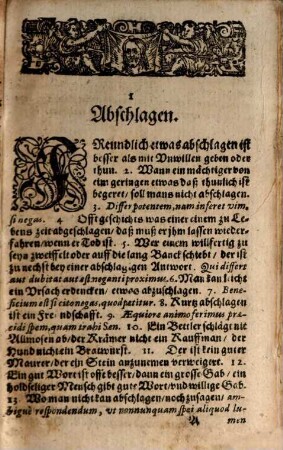 1
Abschlagen.
FReundlich etwas abschlagen ist
besser als mit Vnwillen geben oder
thun. 2. Wann ein mächtiger von
eim geringen etwas daß thunlich ist
begeret / soll mans nicht abschlagen.
3. Differ potentem, nam inferet vim,
si negas. 4. Offt geschichts was einer einem zu Le-
bens zeit abgeschlagen / daß muß er jhm lassen wieder-
fahren / wenn er Tod ist. 5. Wer einem willfertig zu
seyn zweiffelt oder auff die lang Banck schiebt / der ist
zu nechst bey einer abschlagigen Antwort. Qui differt
aut dubitat aut est neganti proximus. 6. Man kan licht
ein Vrsach erdencken / etwas abzuschlagen. 7. Bene-
ficium est si cito neges, quod petitur. 8. Kurtz abschlagen
ist ein Freundschafft. 9. Æquiore animo ferimus præ-
cidi spem, quam trahi Sen. 10. Ein Bettler schlägt nit
Allmosen ab / der Krämer nicht ein Kauffman / der
Hund nicht ein Bratwurst. 11. Der ist kein guter
Maurer / der ein Stein anzunemen verweigert. 12.
Ein gut Wort ist offt besser / dann ein grosse Gab / ein
holdseliger Mensch gibt gute Wort / vnd willige Gab.
13. Wo man nicht kan abschlagen / noch zusagen / am-
biguè respondendum, vt nonnunquam spei aliquod lu-
A men